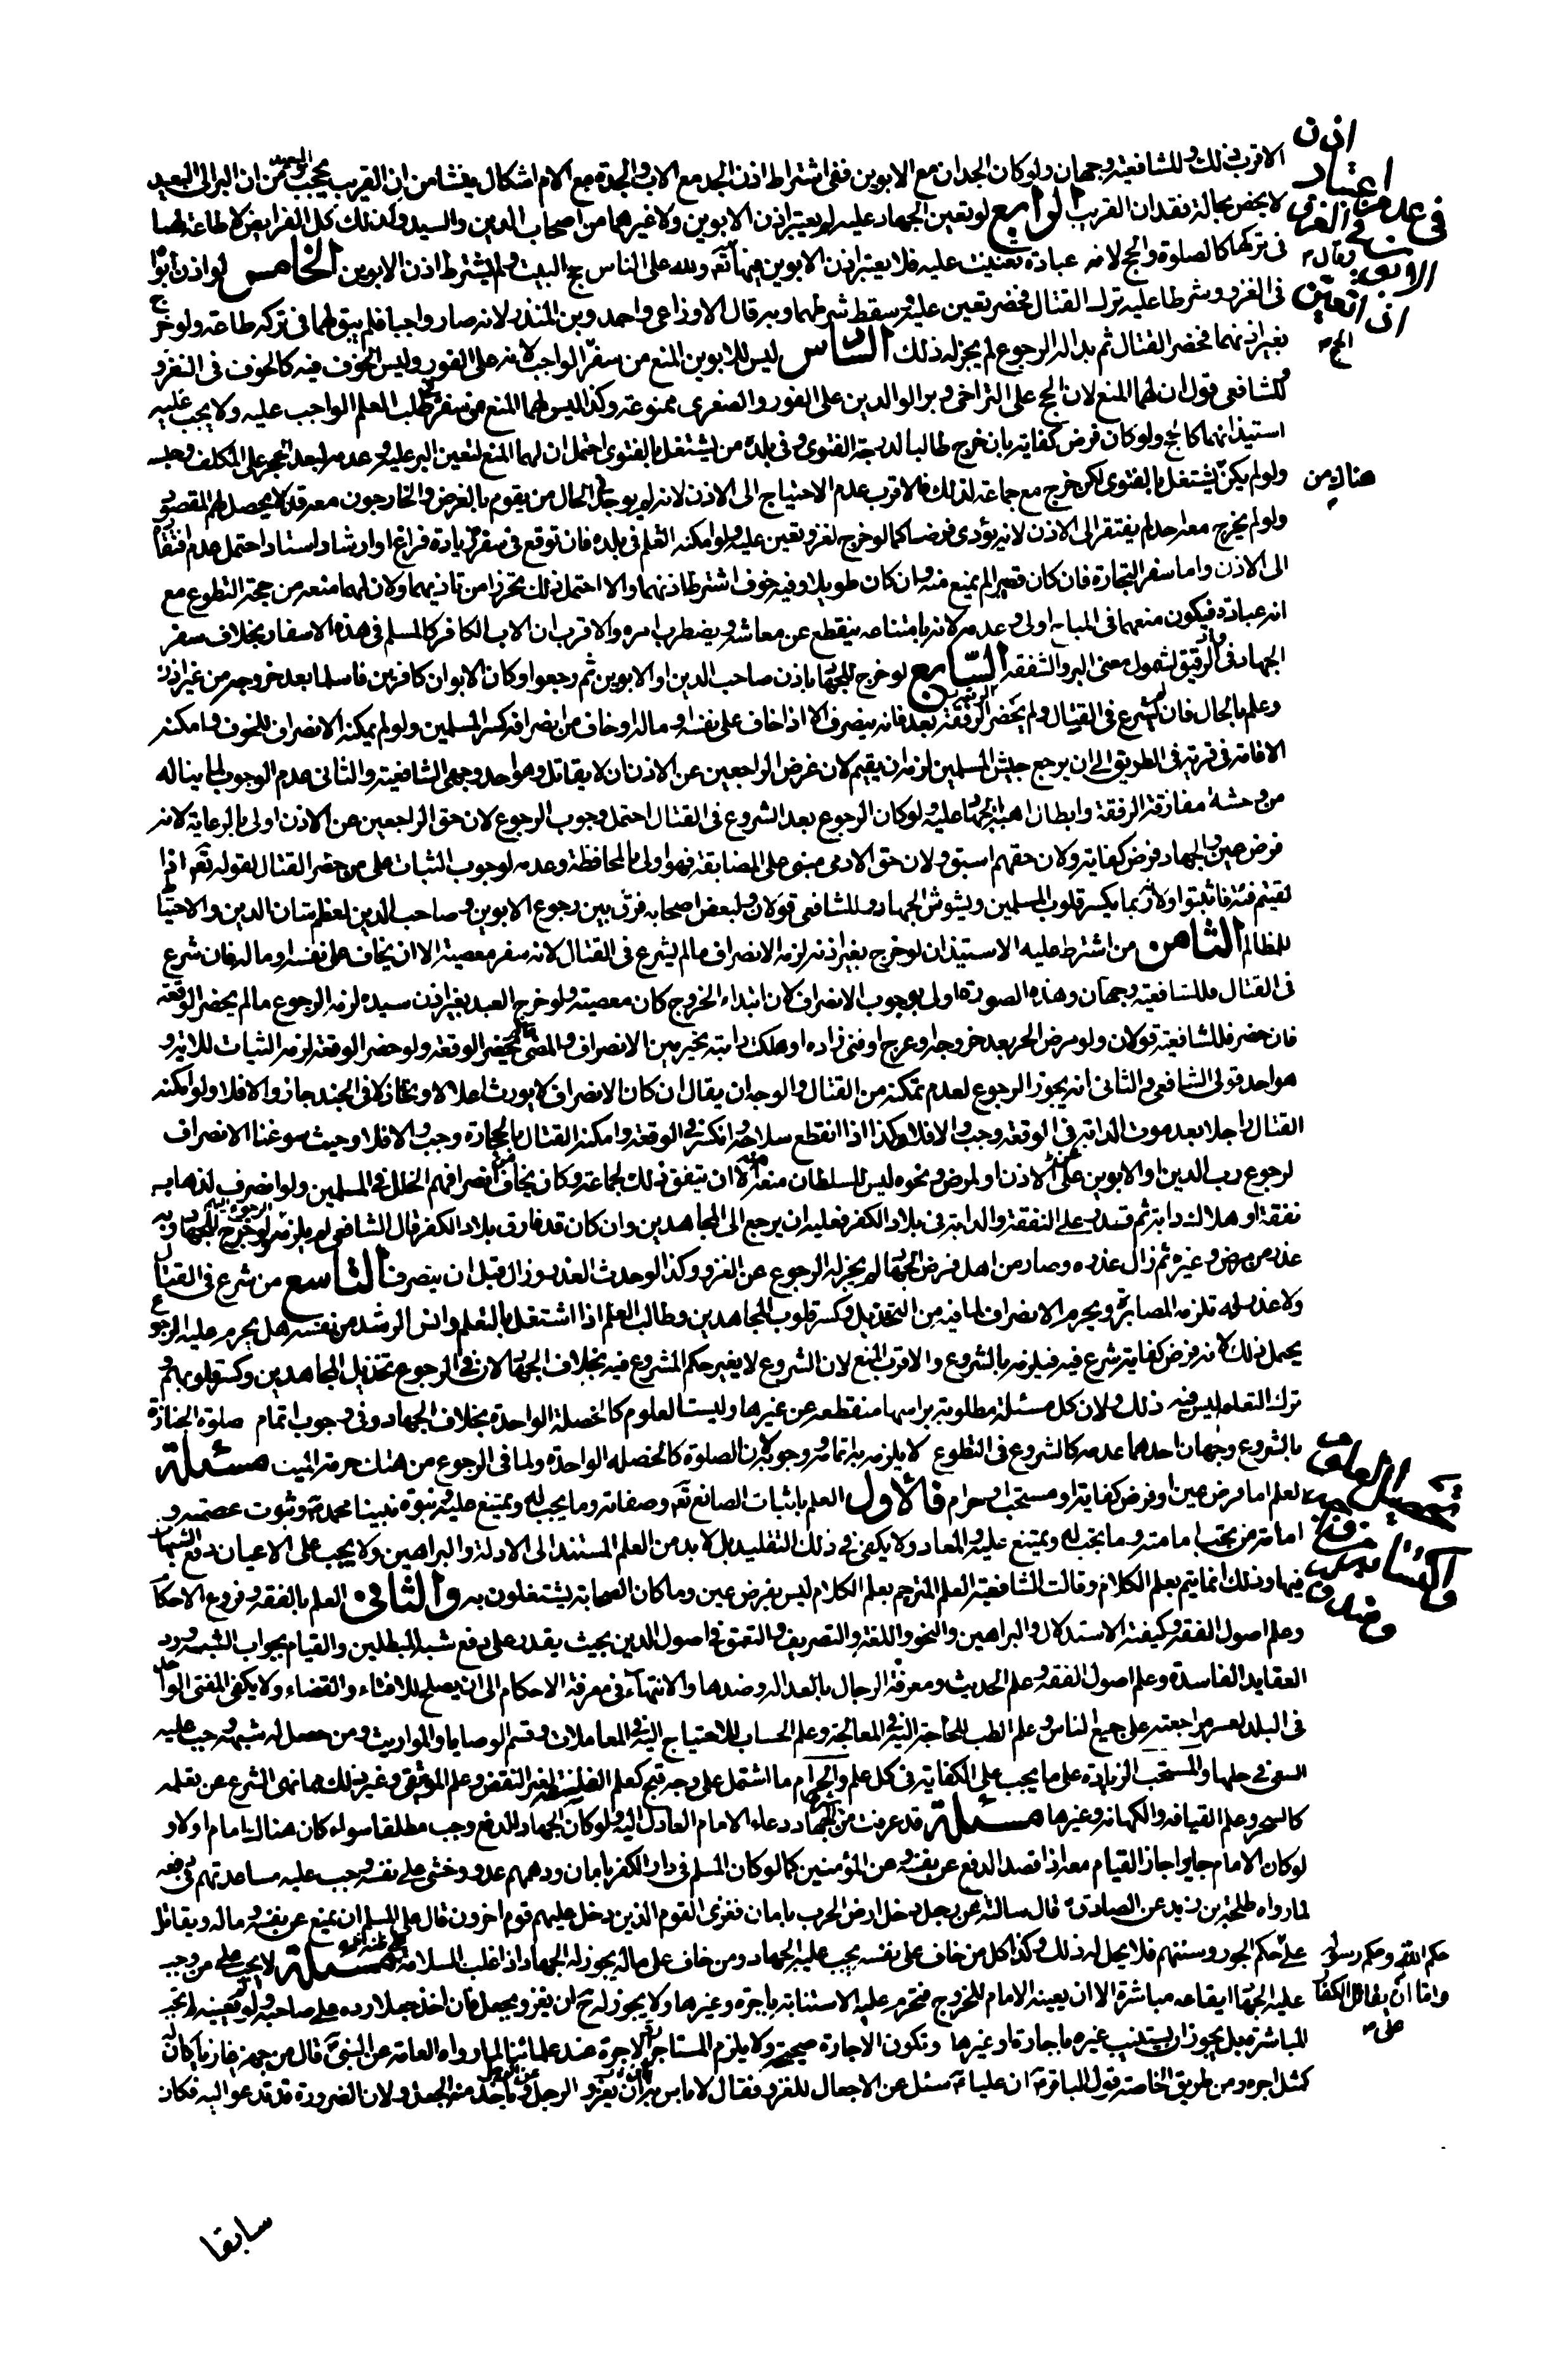 الاقرب ذلك وللشافعية وجهان ولو كان الجدان مع الابوين ففى اشتراط اذن الجد مع الاب والجدة مع الام اشكال ينشا من ان القريب يحجب البعيد ومن ان البر الى البعيد
لا يختص بحالة فقدان القريب الرابع لو تعين الجهاد عليه لم يعتبر اذن الابوين ولا غيرهما من اصحاب الدين والسيد وكذلك كل الفرايض لا طاعة لهما
فى تركها كالصلوة والحج لانه عبادة تعينت عليه فلا يعتبر اذن الابوين فيها قال تع ولله على الناس حج البيت ولم يشترط اذن الابوين الخامس لو اذن ابواه
فى الغزو وشرطا عليه ترك القتال فحضر تعين عليه وسقط شرطهما وبه قال الاوزاعى واحمد وبن المنذر لانه صار واجبا فلم يبق لهما فى تركه طاعة ولو خرج
بغير اذنهما فحضر القتال ثم بدا له الرجوع لم يجز له ذلك السادس ليس للابوين المنع من سفر الواجب لانه على الفور وليس الخوف فيه كالخوف فى الغزو
وللشافعى قول ان لهما المنع لان الحج على التراخى وبر الوالدين على الفور والصغرى ممنوعة وكذا ليس لهما المنع من سفر طلب العلم الواجب عليه ولا يجب عليه
استيذانهما كالحج ولو كان فرض كفاية بان خرج طالبا لدرجة الفتوى وفى بلده من يشتغل بالفتوى احتمل ان لهما المنع لتعين البر عليه وعدمه لبعد الحجر على المكلف وحبسه
ولو لم يكن يشتغل بالفتوى لكن خرج مع جماعة لذلك فالاقرب عدم الاحتياج الى الاذن لانه لم يوجد فى الحال من يقوم بالغرض والخارجون معه قد لا يحصل لهم المقصود
ولو لم يخرج معه احد لم يفتقر الى الاذن لانه يؤدى فرضا كما لو خرج لغزو تعين عليه ولو امكنه التعلم فى بلده فان توقع فى سفره زيادة فراغ او ارشاد استاد احتمل عدم افتقاره
الى الاذن واما سفر التجارة فان كان قصيرا لم يمنع منه وان كان طويلا وفيه خوف اشترط اذنهما والا احتمل ذلك تحرزا من تاذيهما ولان لهما منعه من حجة التطوع مع
انه عبادة فيكون منعهما فى المباح اولى وعدمه لانه بامتناعه ينقطع عن معاشه ويضطرب امره والاقرب ان الاب الكافر كالمسلم فى هذه الاسفار بخلاف سفر
الجهاد والرقيق لشمول معنى البر والشفقة السابع لو خرج للجهاد باذن صاحب الدين او الابوين ثم رجعوا او كان الابوان كافرين فاسلما بعد خروجه من غير اذن
وعلم بالحال فان لم يشرع فى القتال ولم يحضر الوقعة بعد فانه ينصرف الا اذا خاف على نفسه او ماله او خاف من انصرافه كسر المسلمين ولو لم يمكنه الانصراف للخوف وامكنه
الاقامة فى قرية فى الطريق الى ان يرجع جيش المسلمين لزمه ان يقيم لان غرض الراجعين عن الاذن ان لا يقاتل وهو احد وجهى الشافعية والثانى عدم الوجوب لما يناله
من وحشة مفارقة الرفقة وابطال اهبة الجهاد عليه ولو كان الرجوع بعد الشروع فى القتال احتمل وجوب الرجوع لان حق الراجعين عن الاذن اولى بالرعاية لانه
فرض عين والجهاد فرض كفاية ولان حقهم اسبق ولان حق الادمى مبنى على المضايقة فهو اولى بالمحافظة وعدمه لوجوب الثبات على من حضر القتال لقوله تع اذا
لقيتم فئة فاثبتوا ولانه ربما يكسر قلوب المسلمين ويشوش الجهاد وللشافعى قولان ولبعض اصحابه فرق بين رجوع الابوين وصاحب الدين لعظم شان الدين والاحتياط
للمظالم الثامن من اشترط عليه الاستيذان لو خرج بغير اذنه لزمه الانصراف ما لم يشرع فى القتال لانه سفر معصية الا ان يخاف على نفسه او ماله فان شرع
فى القتال فللشافعية وجهان وهذه الصورة اولى بوجوب الانصراف لان ابتداء الخروج كان معصية ولو خرج العبد بغير اذن سيده لزمه الرجوع ما لم يحضر الوقعة
فان حضر فللشافعية قولان ولو مرض الحر بعد خروجه او عرج او فنى زاده او هلكت دابته تخير بين الانصراف والمضى ما لم يحضر الوقعة ولو حضر الوقعة لزمه الثبات للاية و
هو احد قولى الشافعى والثانى انه يجوز الرجوع لعدم تمكنه من القتال والوجه ان يقال ان كان الانصراف لا يورث اعلالا وتخاذلا فى الجند جاز والا فلا ولو امكنه
القتال راجلا بعد موت الدابة فى الوقعة وجب والا فلا وكذا اذا انقطع سلاحه او انكسر فى الوقعة وامكنه القتال بالحجارة وجب والا فلا وحيث سوغنا الانصراف
لرجوع رب الدين او الابوين عن الاذن او لمرض ونحوه ليس للسلطان منعه الا ان يتفق ذلك لجماعة وكان يخاف من انصرافهم الخلل فى المسلمين ولو انصرف لذهاب
نفقة او هلاك دابة ثم قدر على النفقة والدابة فى بلاد الكفر فعليه ان يرجع الى المجاهدين وان كان قد فارق بلاد الكفر قال الشافعى لم يلزمه الرجوع اليهم ولو خرج للجهاد وبه
عذر من مرض وغيره ثم زال عذره وصار من اهل فرض الجهاد لم يجز له الرجوع عن الغزو وكذا لو حدث العذر وزال قبل ان ينصرف التاسع من شرع فى القتال
ولا عذر له تلزمه المصابرة ويحرم الانصراف لما فيه من التخذيل وكسر قلوب المجاهدين وطالب العلم اذا اشتغل بالتعلم وانس الرشد من نفسه هل يحرم عليه الرجوع
يحتمل ذلك لانه فرض كفاية شرع فيه فيلزمه بالشروع والاقرب المنع لان الشروع لا يغير حكم المشروع فيه بخلاف الجهاد لان فى الرجوع تخذيل المجاهدين وكسر قلوبهم و
ترك التعلم ليس فيه ذلك ولان كل مسئلة مطلوبة براسها منقطعة عن غيرها وليست العلوم كالخصلة الواحدة بخلاف الجهاد وفى وجوب اتمام صلوة الجنازة
بالشروع وجهان احدهما عدمه كالشروع فى التطوع لا يلزمه اتمامه ووجوبه لان الصلوة كالخصلة الواحدة ولما فى الرجوع من هتك حرمة الميت مسئلة
العلم اما فرض عين او فرض كفاية او مستحب او حرام فالاول العلم باثبات الصانع تع وصفاته وما يجب له ويمتنع عليه ونبوة نبينا محمد ص وثبوت عصمته و
امامة من يجب امامته وما يجب له ويمتنع عليه والمعاد ولا يكفى فى ذلك التقليد بل لا بد من العلم المستند الى الادلة والبراهين ولا يجب على الاعيان دفع الشبهات
فيها وذلك انما يتم بعلم الكلام وقالت الشافعية العلم المترجم بعلم الكلام ليس بفرض عين وما كان الصحابة يشتغلون به والثانى العلم بالفقه وفروع الاحكام
وعلم اصول الفقه وكيفية الاستدلال والبراهين والنحو واللغة والتصريف والتعمق فى اصول الدين بحيث يقدر على دفع شبه المبطلين والقيام بجواب الشبه ورد
العقايد الفاسدة وعلم اصول الفقه وعلم الحديث ومعرفة الرجال بالعدالة وضدها والانتهاء فى معرفة الاحكام الى ان يصلح للافتاء والقضاء ولا يكفى المفتى الواحد
فى البلد لعسر مراجعته على جميع الناس وعلم الطب للحاجة اليه فى المعالجة وعلم الحساب للاحتياج اليه فى المعاملات وقسم الوصايا والمواريث ومن حصل له شبهة وجب عليه
السعى فى حلها والمستحب الزيادة على ما يجب على الكفاية فى كل علم والحرام ما اشتمل على وجه قبح كعلم الفلسفة لغير النقض وعلم الموسيقى وغير ذلك مما نهى الشرع عن تعلمه
كالسحر وعلم القيافة والكهانة وغيرها مسئلة قد عرفت من شرط الجهاد دعاء الامام العادل اليه ولو كان الجهاد للدفع وجب مطلقا سواء كان هناك امام او لا و
لو كان الامام جايرا جاز القيام معه اذا قصد الدفع عن نفسه وعن المؤمنين كما لو كان المسلم فى دار الكفر بامان ودهمهم عدو وخشى على نفسه وجب عليه مساعدتهم فى دفعه
لما رواه طلحة بن زيد عن الصادق ع قال سالته عن رجل دخل ارض الحرب بامان فغزى القوم الذين دخل عليهم قوم اخرون قال على المسلم ان يمنع عن نفسه وماله ويقاتل
على حكم الجور وسنتهم فلا يحل له ذلك وكذا كل من خاف على نفسه يجب عليه الجهاد ومن خاف على ماله يجوز له الجهاد اذا غلب السلامة مسئلة لا يجب على من وجب
عليه الجهاد ايقاعه مباشرة الا ان يعينه الامام للخروج فتحرم عليه الاستنابة باجرة وغيرها ولا يجوز له ح ان يغزو بجعل فان اخذ جعلا رده على صاحبه ولو لم يعينه لم تجب
المباشرة بل يجوز ان يستنيب غيره باجارة او غيرها وتكون الاجارة صحيحة ولا يلزم المستاجر رد الاجرة عند علمائنا لما رواه العامة عن النبى ص قال من جهز غازيا كان له
كمثل اجره ومن طريق الخاصة قول الباقر ع ان عليا ع سئل عن الاجعال للغزو فقال لا باس به ان يغزو الرجل عن الرجل وياخذ منه الجعل ولان الضرورة قد تدعو اليه فكان
فى عدم اعتبار اذن
الابوين
اذا تعين
هناك من
تحصيل العلم
واقسامه
حكم الله وحكم رسوله
واما ان يقاتل الكفار
على
سابقا